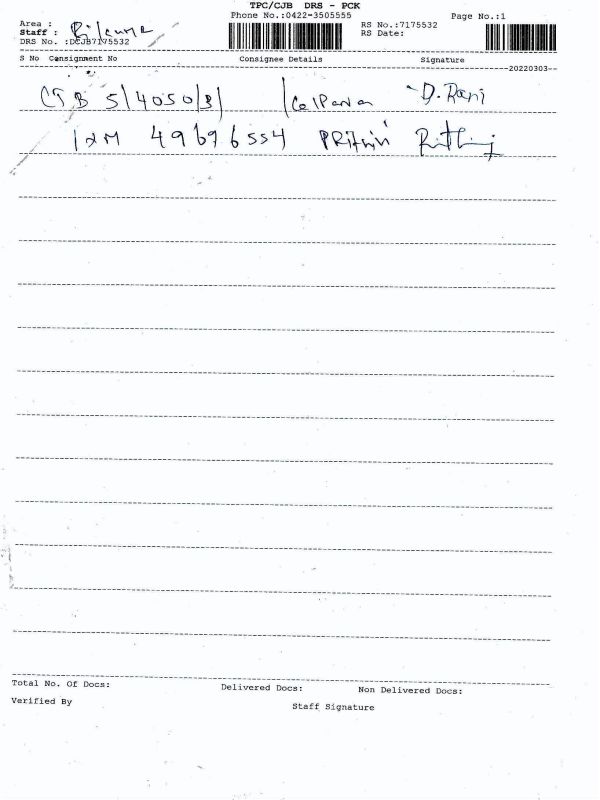 TPC/CJB DRS - PCK
Phone No.:0422-3505555
Page No.:1
Area :
Staff :
DRS No. :DCJB7175532
RS No.:7175532
RS Date:
S No Consignment No Consignee Details Signature
--20220303--
CJB 514050131 D.Rani
IXM 49696554
Total No. Of Docs: Delivered Docs: Non Delivered Docs:
Verified By
Staff Signature